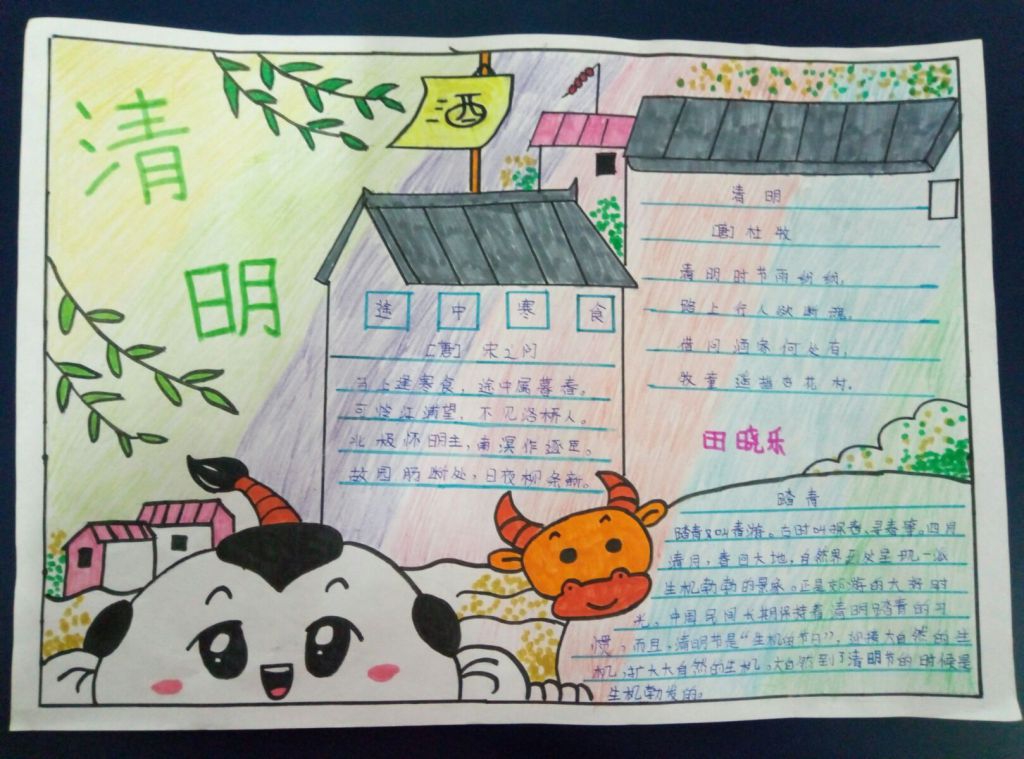 清
明
酒
途中寒食
[唐] 宋之问
马上逢寒食，途中属暮春。
可怜江浦望，不见洛桥人。
北极怀明主，南溟作逐臣。
故园肠断处，日夜柳条新。
清明
[唐] 杜牧
清明时节雨纷纷，
路上行人欲断魂，
借问酒家何处有，
牧童遥指杏花村.
田晓乐
踏青
踏青又叫春游。古时叫探春、寻春等。四月
清月，春回大地，自然界到处呈现一派
生机勃勃的景象。正是郊游的大好时
光，中国民间长期保持着清明踏青的习
惯，而且，清明节是“生机的节日”，迎接大自然的生
机，扩大大自然的生机，大自然到了清明节的时候是
生机勃发的。